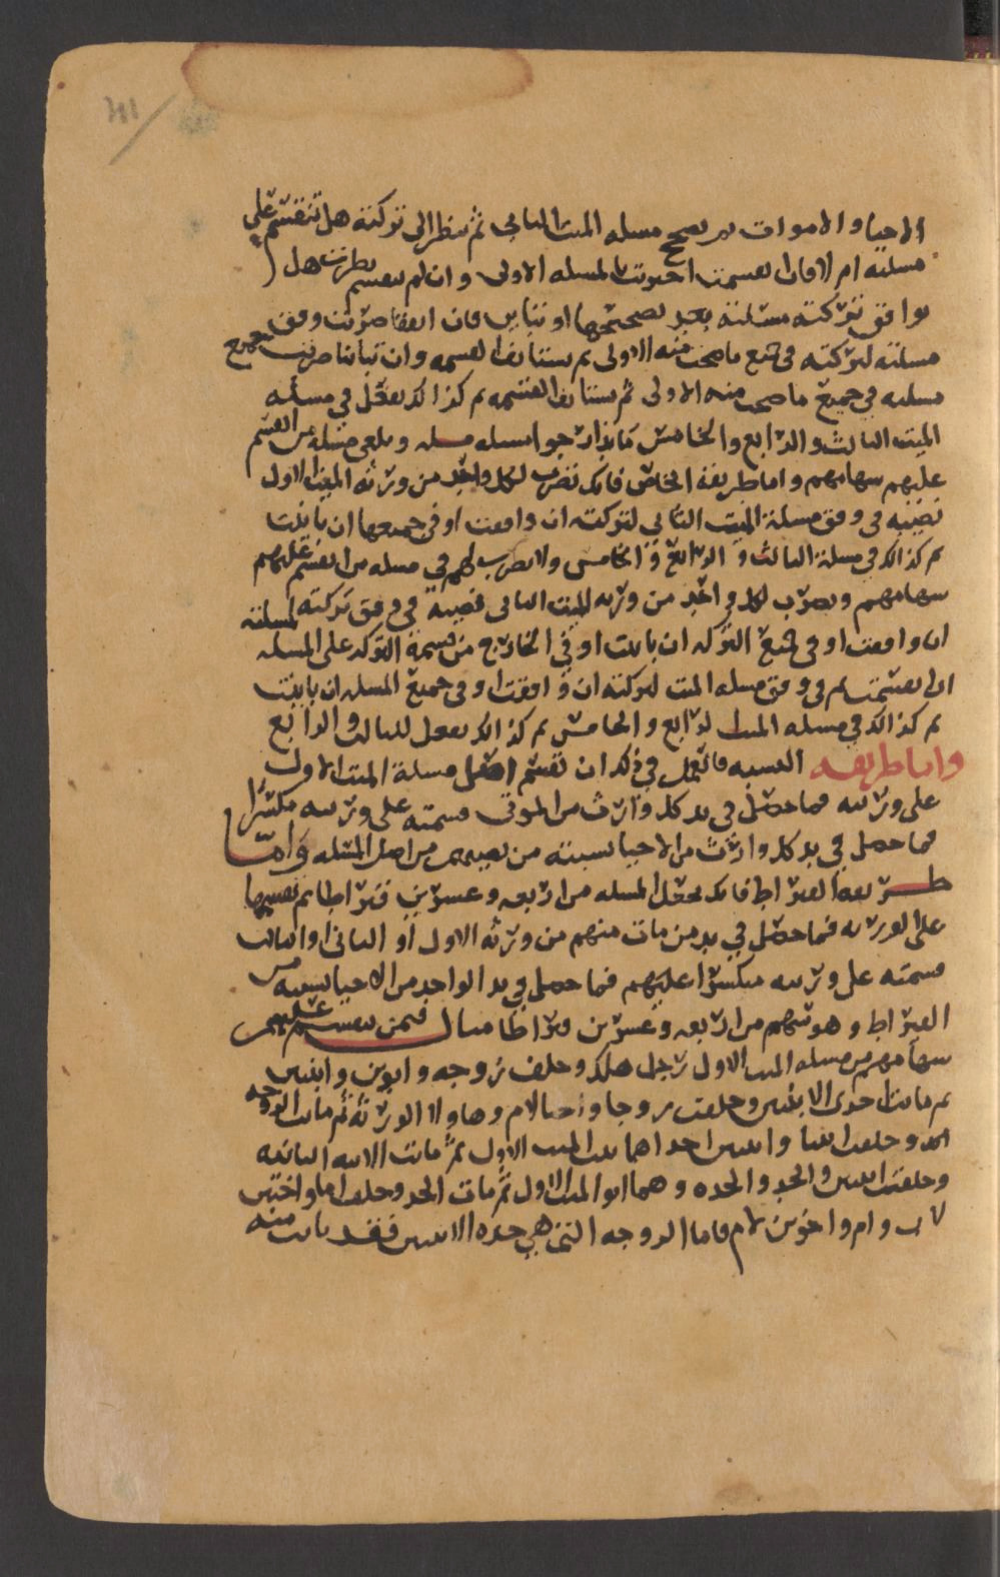 الاحيا والاموات ثم تصحح مسلة الميت الثاني ثم تنظر الى تركته هل تنقسم على
مسلته ام لا فان انقسمت اجتزيت بالمسله الاولى وان لم تنقسم نظرت هل
توافق تركته مسئلته بعد تصحيحها او تباين فان اتفقا ضربت وفق
مسلته لتركته في جميع ما صحت منه الاولى ثم تستانف القسمه وان تباينا ضربت جميع
مسلته في جميع ما صحت منه الاولى ثم تستانف القسمه ثم كذالك تفعل في مسئله
الميت الثالث والرابع والخامس
عليهم سهامهم واما طريقة الخاص فانك تضرب لكل واحد من ورثة الميت الاول
نصيبه في وفق مسلة الميت الثاني لتركته ان وافقت او في جميعها ان باينت
ثم كذالك في مسلة الثالث والرابع والخامس ولا تضرب لهم في مسله من انقسم عليهم
سهامهم وتضرب لكل واحد من ورثه الميت الثاني نصيبه في وفق تركته لمسلته
ان وافقت او في جميع التركه ان باينت او في الخارج من قسمة التركه على المسله
ان انقسمت ثم في وفق مسله الميت لتركته ان وافقت او في جميع المسله ان باينت
ثم كذالك في مسله الميت الرابع والخامس ثم كذالك تفعل للثالث والرابع
واما طريقه النسبه فالعمل في ذلك ان تقسم اصل مسلة الميت الاول
على ورثته فما حصل في يد كل وارث من الموتى قسمته على ورثته مكسرا
فما حصل في يد كل وارث من الاحيا نسبته من نصيبهم من اصل المسله واما
طريقة القيراط فانك تجعل المسله من اربعه وعشرين قيراطا ثم تقسمها
على الورثه فما حصل في يد من مات منهم من ورثه الاول او الثاني او الثالث
قسمته على ورثته منكسرا عليهم فما حصل في يد الواحد من الاحيا نسبته من
القيراط وهو سهم من اربعه وعشرين قيراطا مثال فيمن تقسم عليهم
سهامهم من مسله الميت الاول رجل هلك وخلف زوجه وابوين وابنتين
ثم ماتت احدى الابنتين وخلفت زوجا واخا لام وهاولا الورثة ثم ماتت الزوجه
وخلفت ابنا وابنتين احداهما بنت الميت الاول ثم ماتت الابنه الثانيه
وخلفت ابنتين والجد والجده وهما ابوا الميت الاول ثم مات الجد وخلف اما واختين
لاب وام واخوين لام فاما الزوجه التي هي جده الابنتين فقد بانت منه